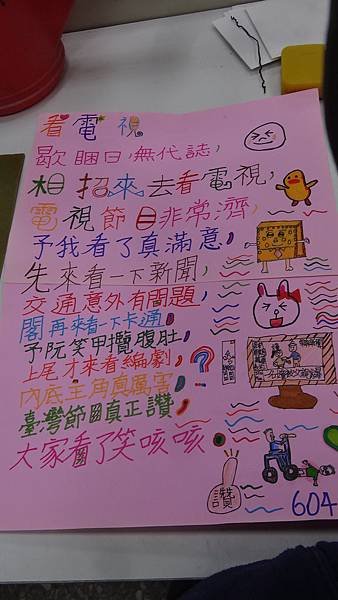 看電視
歇睏日,無代誌,
相招來去看電視,
電視節目非常濟,
予我看了真滿意,
先來看一下新聞,
交通意外有問題
閣再來看一下卡通
予阮笑甲攬腹肚
上尾才來看編劇,
內底主角真厲害,
臺灣節目真正讚,
大家看了笑咳咳
讚
604